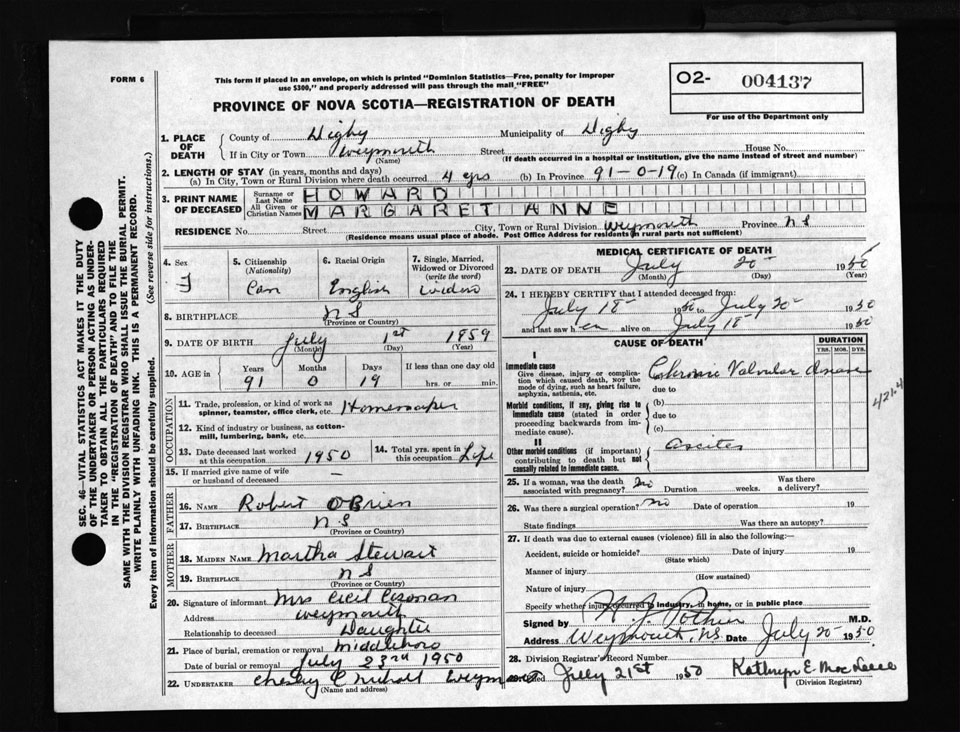 FORM 6
This form if placed in an envelope, on which is printed "Dominion Statistics—Free, penalty for improper
use $300," and properly addressed will pass through the mail "FREE"
O2- 004137
For use of the Department only
PROVINCE OF NOVA SCOTIA—REGISTRATION OF DEATH
1. PLACE OF DEATH
County of Digby Municipality of Digby
If in City or Town Weymouth Street House No.
(Name) (If death occurred in a hospital or institution, give the name instead of street and number)
2. LENGTH OF STAY (in years, months and days)
(a) In City, Town or Rural Division where death occurred 4 yrs (b) In Province 91-0-19 (c) In Canada (if immigrant)
3. PRINT NAME OF DECEASED
Surname or Last Name HOWARD
All Given or Christian Names MARGARET ANNE
RESIDENCE No. Street City, Town or Rural Division Weymouth Province NS
(Residence means usual place of abode. Post Office Address for residents in rural parts not sufficient)
4. Sex 5. Citizenship (Nationality) 6. Racial Origin 7. Single, Married, Widowed or Divorced (write the word)
F Can English Widow
8. BIRTHPLACE NS
(Province or Country)
9. DATE OF BIRTH July 1st 1859
(Month) (Day) (Year)
10. AGE in Years Months Days If less than one day old
91 0 19 hrs. or min.
OCCUPATION
11. Trade, profession, or kind of work as
spinner, teamster, office clerk, etc. Homemaker
12. Kind of industry or business, as cotton-
mill, lumbering, bank, etc.
13. Date deceased last worked at this occupation 1950 14. Total yrs. spent in this occupation Life
15. If married give name of wife
or husband of deceased —
FATHER
16. NAME Robert O'Brien
17. BIRTHPLACE NS
(Province or Country)
MOTHER
18. MAIDEN NAME Martha Stewart
19. BIRTHPLACE NS
(Province or Country)
20. Signature of informant Mrs Cecil
Address Weymouth
Relationship to deceased Daughter
21. Place of burial, cremation or removal Middleboro
Date of burial or removal July 23rd 1950
22. UNDERTAKER
(Name and address)
MEDICAL CERTIFICATE OF DEATH
23. DATE OF DEATH July 20 1950
(Month) (Day) (Year)
24. I HEREBY CERTIFY that I attended deceased from:
July 18 1950 to July 20 1950
and last saw her alive on July 18 1950
CAUSE OF DEATH DURATION
YRS. MOS. DYS.
I
Immediate cause
Give disease, injury or complica-
tion which caused death, NOT the
mode of dying, such as heart failure,
asphyxia, asthenia, etc.
Chronic Valvular disease
due to
Morbid conditions, if any, giving rise to
immediate cause (stated in order
proceeding backwards from im-
mediate cause).
(b)
due to
(c)
II
Other morbid conditions (if important)
contributing to death but not
causally related to immediate cause.
ascites
421.4
25. If a woman, was the death
associated with pregnancy? no Duration weeks. Was there a delivery?
26. Was there a surgical operation? no Date of operation 19
State findings Was there an autopsy?
27. If death was due to external causes (violence) fill in also the following:—
Accident, suicide or homicide? Date of injury 19
(State which)
Manner of injury
(How sustained)
Nature of injury
Specify whether injury occurred in industry, in home, or in public place
Signed by H. J. Pothier M.D.
Address Weymouth, N.S. Date July 20 1950
28. Division Registrar's Record Number
Filed July 21st 1950 Kathryn E. Mac
(Division Registrar)
SEC. 46—VITAL STATISTICS ACT MAKES IT THE DUTY
OF THE UNDERTAKER OR PERSON ACTING AS UNDER-
TAKER TO OBTAIN ALL THE PARTICULARS REQUIRED
IN THE "REGISTRATION OF DEATH" AND TO FILE THE
SAME WITH THE DIVISION REGISTRAR WHO SHALL ISSUE THE BURIAL PERMIT.
WRITE PLAINLY WITH UNFADING INK. THIS IS A PERMANENT RECORD.
Every item of information should be carefully supplied. (See reverse side for instructions.)